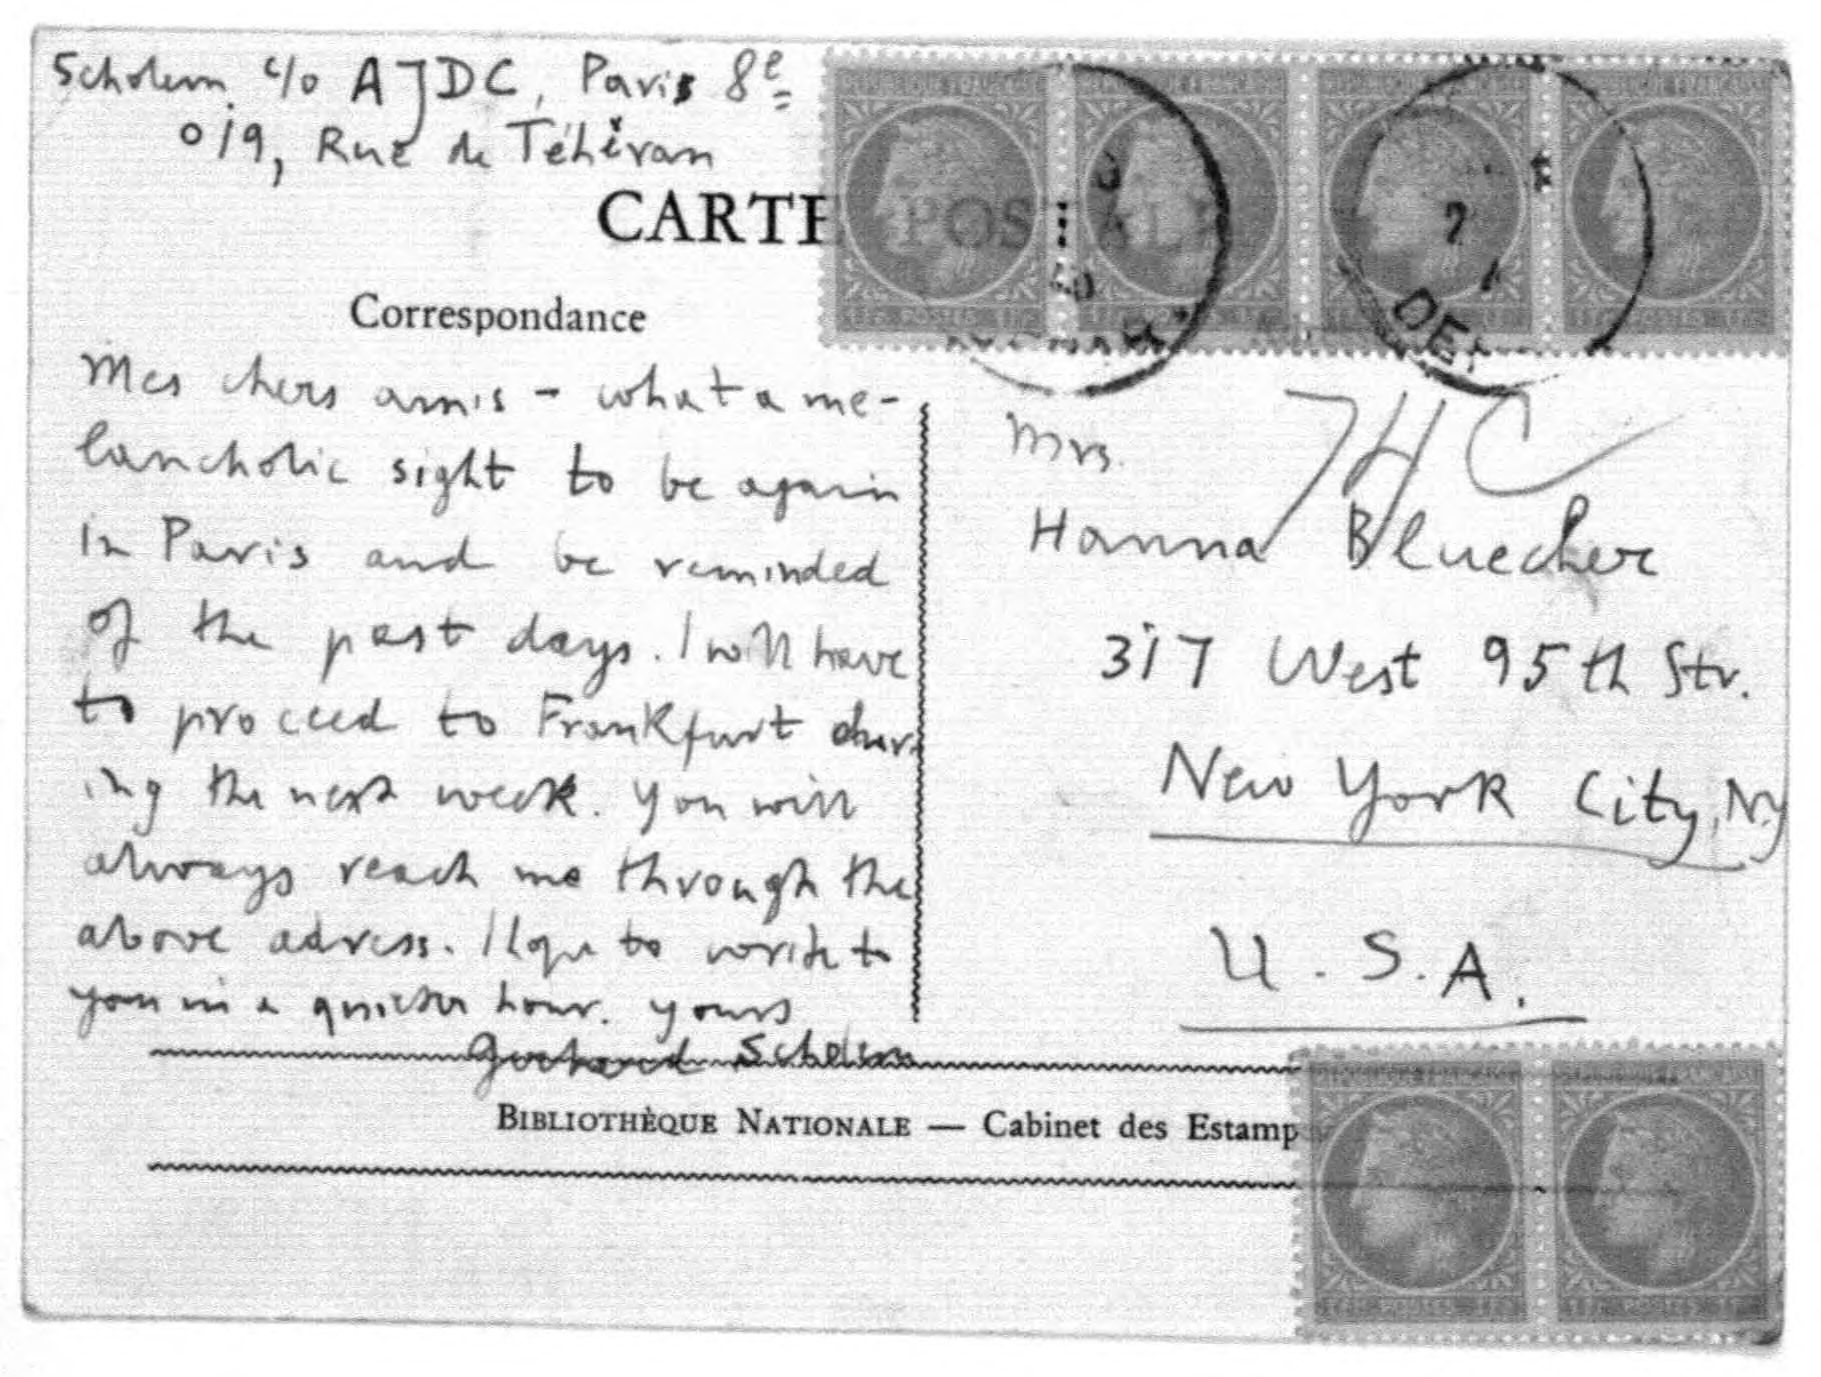 Scholem c/o AJDC, Paris 8e
019, Rue de Téhéran
CARTE POSTALE
Correspondance
Mes chers amis - what a me-
lancholic sight to be again
in Paris and be reminded
of the past days. I will have
to proceed to Frankfurt dur-
ing the next week. You will
always reach me through the
above adress. I hope to write to
you in a quieter hour. Yours
Gerhard Scholem
Mrs.
Hanna Bluecher
317 West 95th Str.
New York City, NY
U.S.A.
BIBLIOTHÈQUE NATIONALE — Cabinet des Estamp